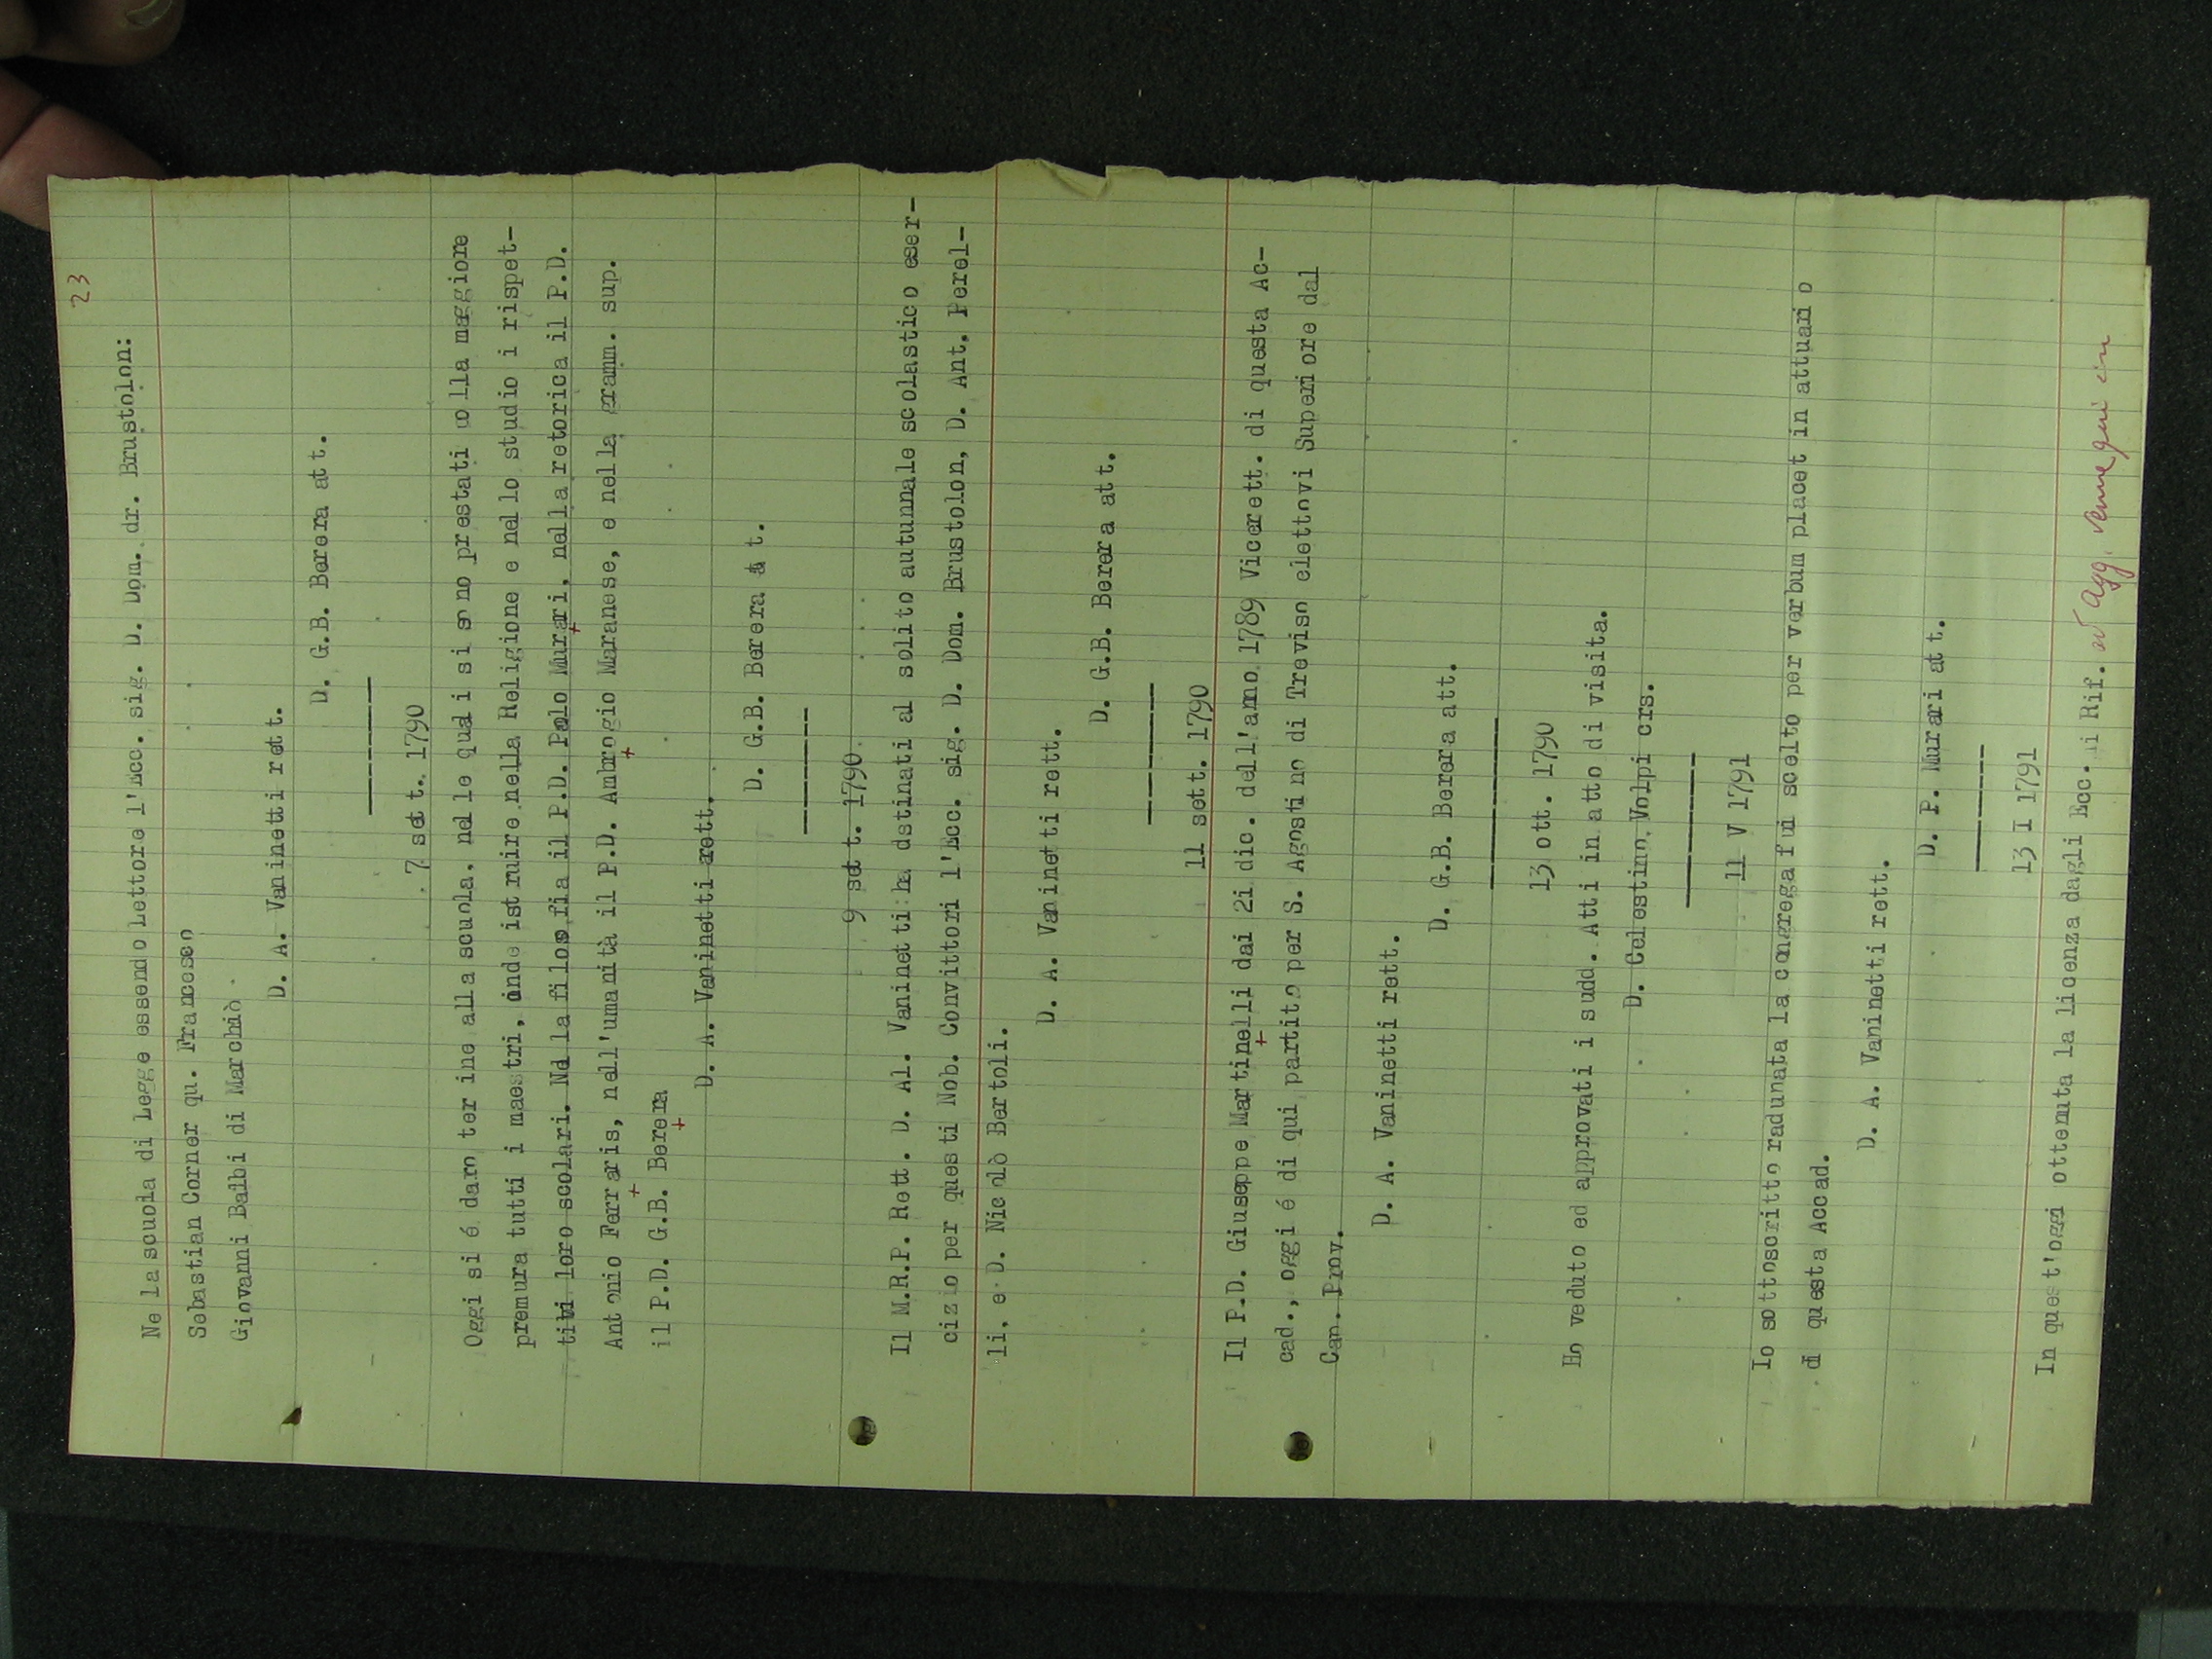 23
Ne la scuola di Legge essendo Lettore l'Ecc. sig. D. Dom. dr. Brustolon:
Sebastian Corner qu. Francesco
Giovanni Balbi di Marchiò
D. A. Vaninetti ret t.
D. G.B. Berera at t.
7 set t. 1790
Oggi si é daro ter ine alla scuola, nel le quali si sono prestati colla maggiore
premura tutti i maestri, onde ist ruire nella Religione e nel lo studio i rispet-
tivi loro scolari. Nel la filosofia il P.D. Paolo Murari, nella retorica il P.D.
Ant onio Ferraris, nell'umanità il P.D. Ambrogio Maranese, e nella gramm. sup.
il P.D. G.B. Berera
D. A. Vaninetti rett.
D. G.B. Berera at t.
9 set t. 1790
Il M.R.P. Rett. D. Al. Vaninetti ha dstinati al solito autunnale scolastico eser-
cizio per questi Nob. Convittori l'Ecc. sig. D. Dom. Brustolon, D. Ant. Perel-
li, e D. Nicolò Bertoli.
D. A. Vaninetti rett.
D. G.B. Berera att.
11 sett. 1790
Il P.D. Giuseppe Martinelli dai 2i dic. dell'anno 1789 Vicerett. di questa Ac-
cad., oggi é di qui partito per S. Agostino di Treviso elettovi Superiore dal
Cap. Prov.
D. A. Vaninetti rett.
D. G.B. Berera att.
13 ott. 1790
Ho veduto ed approvati i sudd. Atti in atto di visita.
D. Celestino Volpi crs.
11 V 1791
Io sottoscritto radunata la congrega fui scelto per verbum placet in attuario
di questa Accad.
D. A. Vaninetti rett.
D. P. Murari at t.
13 I 1791
In quest'oggi ottenuta la licenza dagli Ecc. i Rif. ed Agg. venne qui in